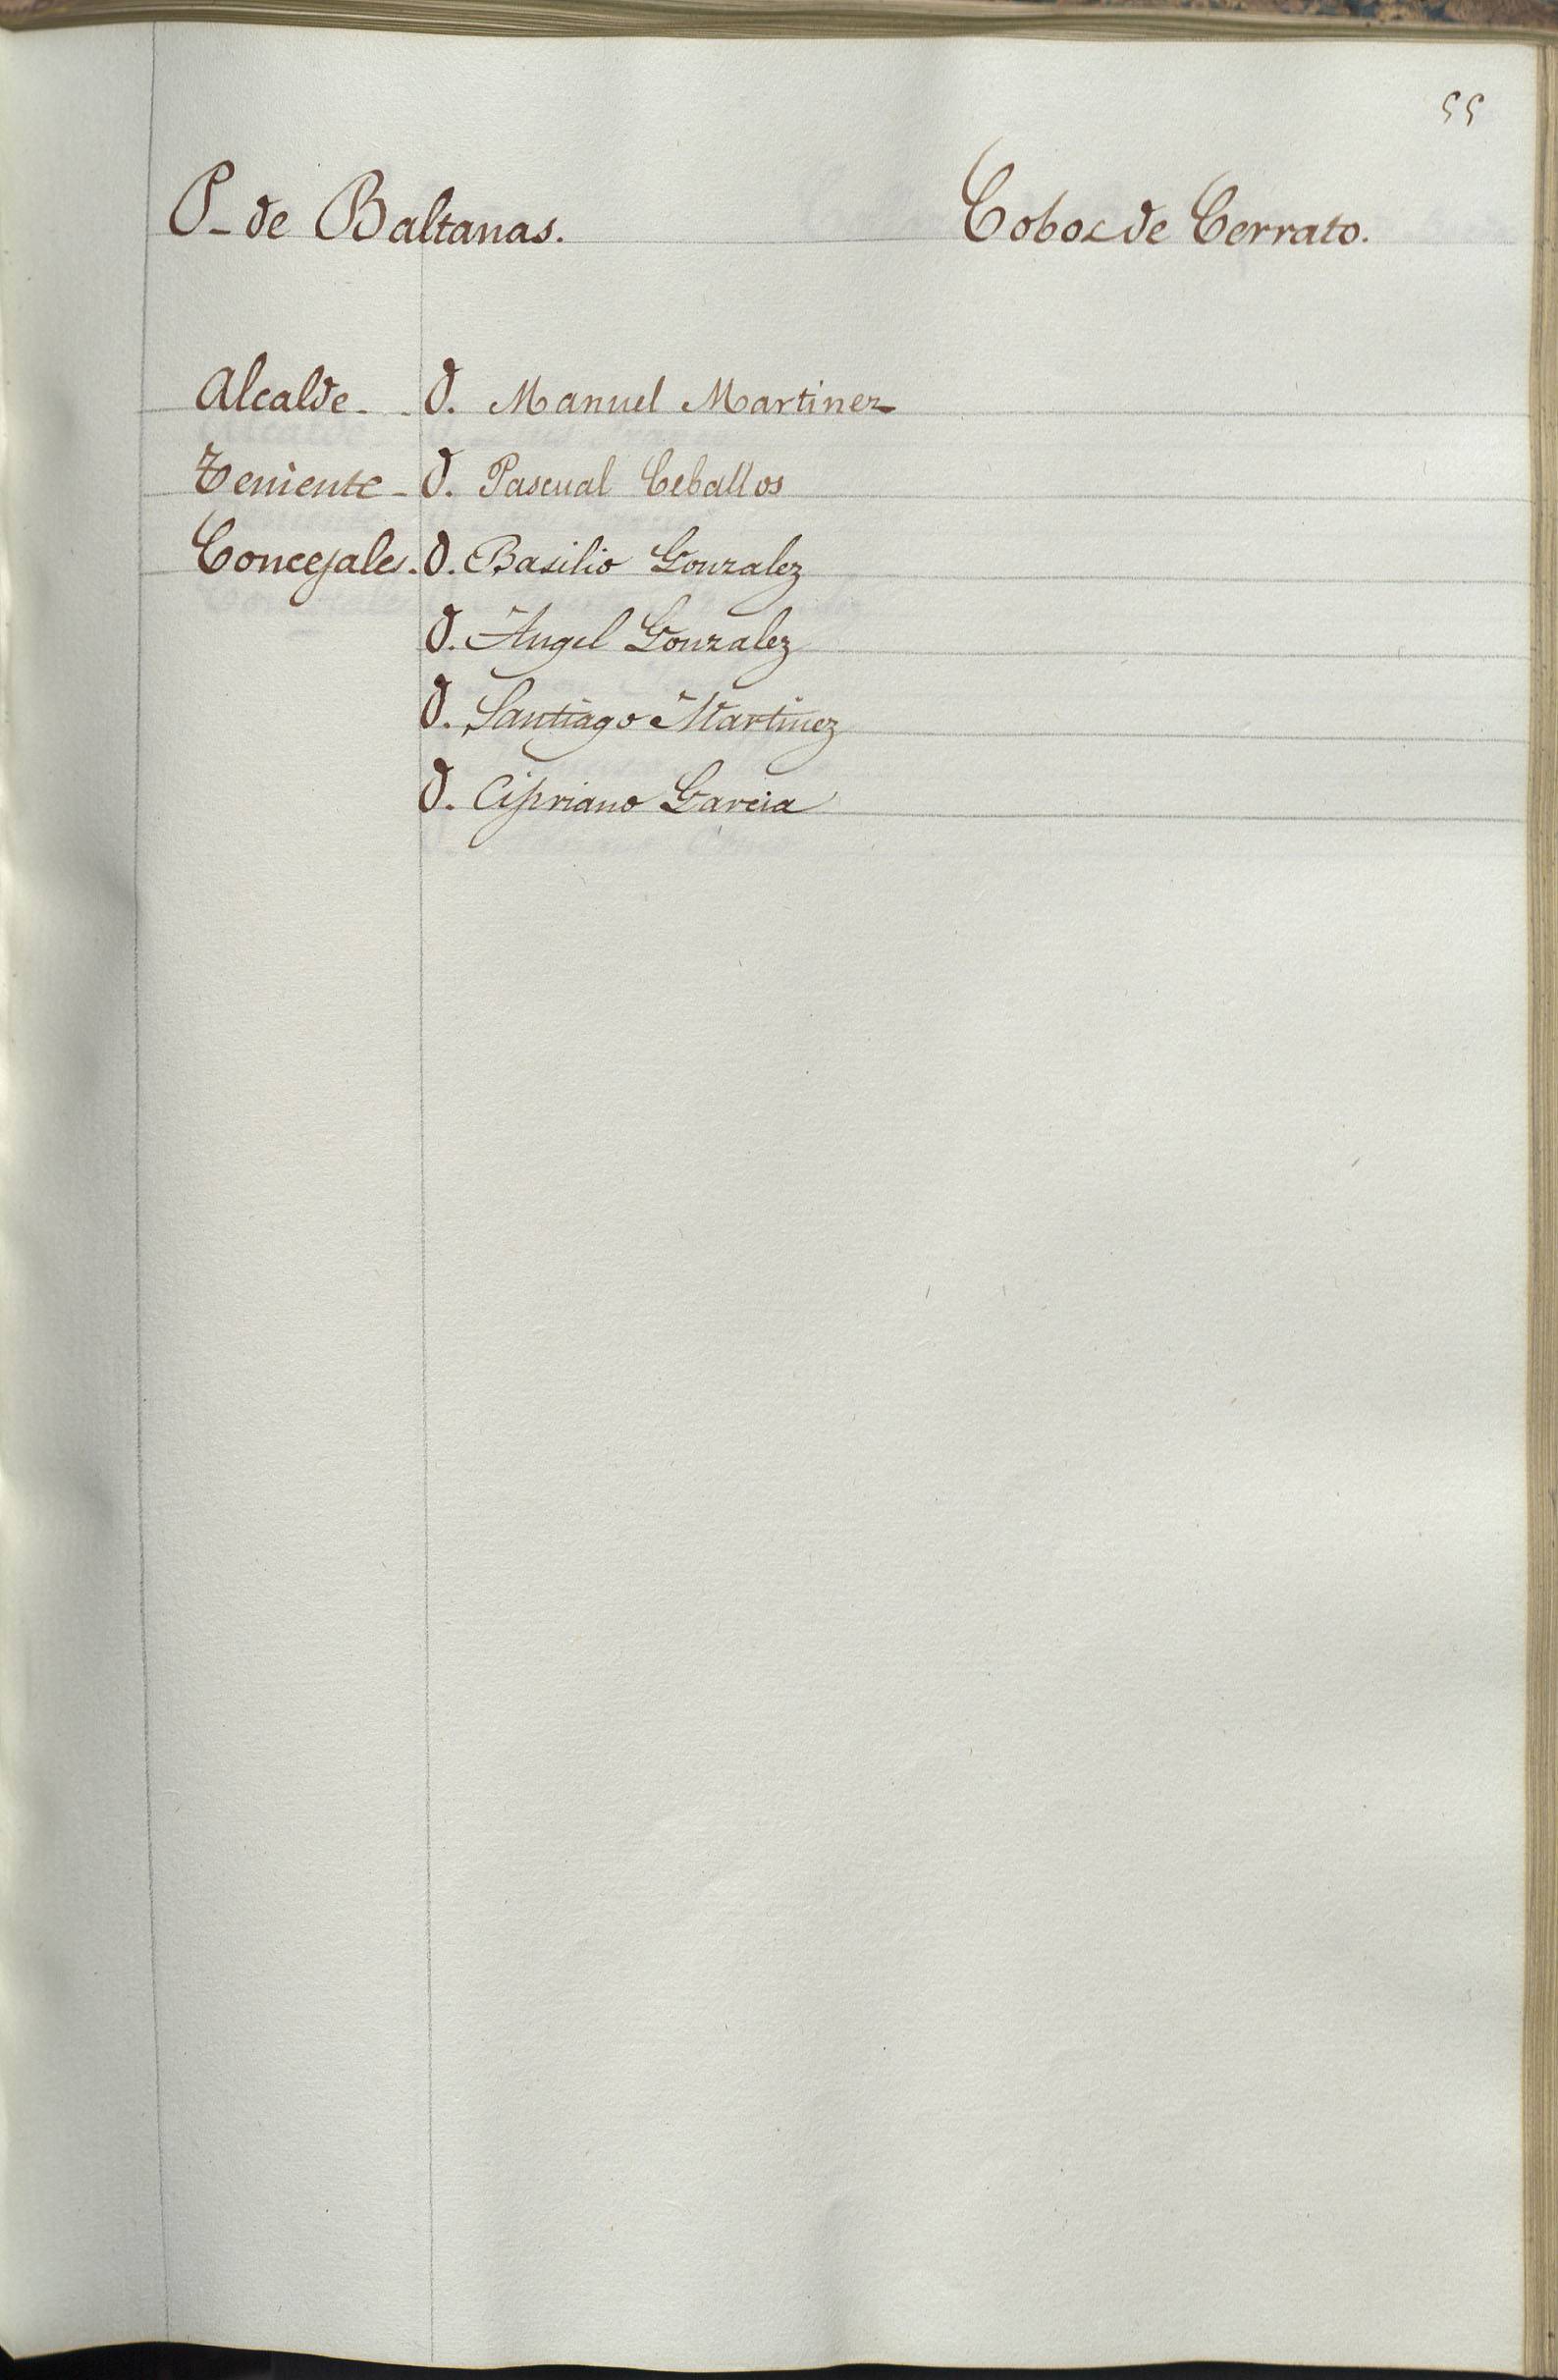 55
P- de Baltanas. Cobos de Cerrato.
Alcalde - - D. Manuel Martinez
Teniente - D. Pascual Ceballos
Concejales. D. Basilio Gonzalez
D. Angel Gonzalez
D. Santiago Martinez
D. Cipriano Garcia